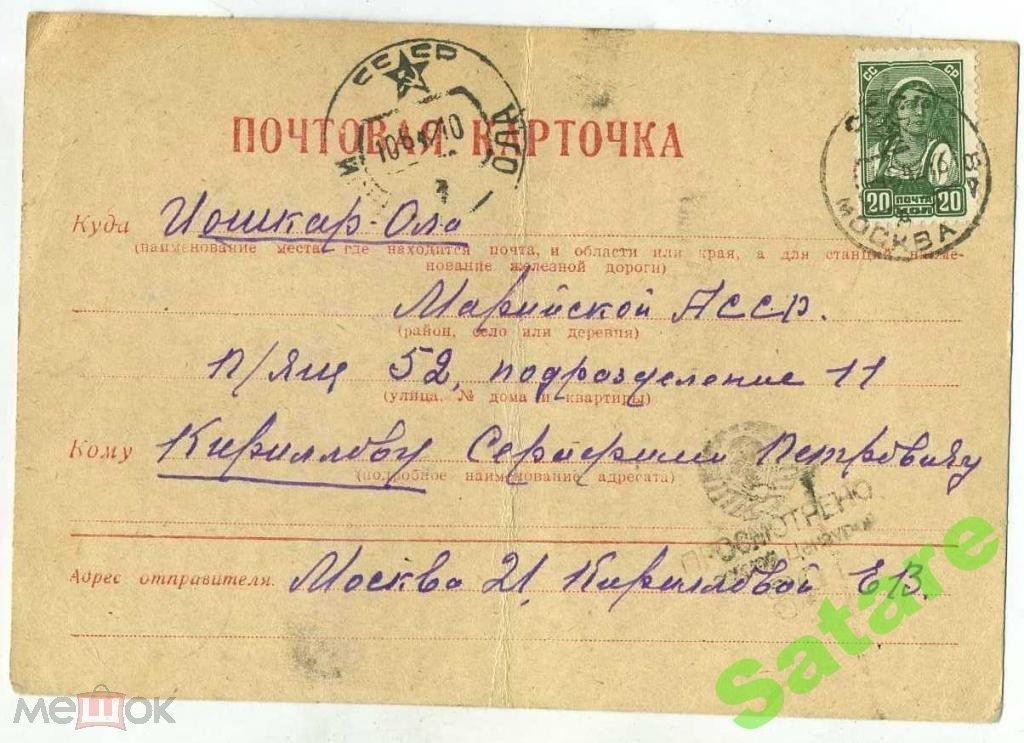 СССР
10 6 42 10
ПОЧТОВАЯ КАРТОЧКА
СС СР
20 ПОЧТА 20
МОСКВА
Куда Иошкар-Ола
(наименование места, где находится почта, и области или края, а для станций наиме-
нование железной дороги)
Марийской АССР.
(район, село или деревня)
П/Ящ 52, подразделение 11
(улица, № дома и квартиры)
Кому Кириллову Серафиму Петровичу
(подробное наименование адресата)
ПРОСМОТРЕНО
Военной Цензурой
Адрес отправителя. Москва 21, Кирилловой Е.В.
Satare
мешок